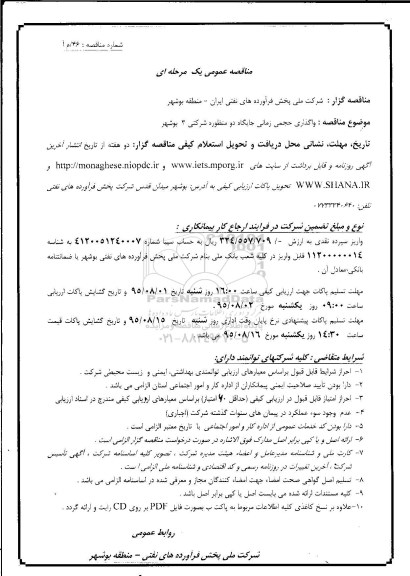 شماره مناقصه : ۴۶/م آ
مناقصه عمومی یک مرحله ای
مناقصه گزار : شرکت ملی پخش فرآورده های نفتی ایران - منطقه بوشهر
موضوع مناقصه : واگذاری حجمی زمانی جایگاه دو منظوره شرکتی ۳ بوشهر
تاریخ، مهلت، نشانی محل دریافت و تحویل استعلام کیفی مناقصه گزار: دو هفته از تاریخ انتشار آخرین
آگهی روزنامه و قابل برداشت از سایت های www.iets.mporg.ir و http://monaghese.niopdc.ir و
WWW.SHANA.IR تحویل پاکات ارزیابی کیفی به آدرس: بوشهر میدان قدس شرکت پخش فرآورده های نفتی
تلفن:
نوع و مبلغ تضمین شرکت در فرایند ارجاع کار پیمانکاری :
واریز سپرده نقدی به ارزش -/۳۳۴/۵۵۷/۷۰۹ ریال به حساب سیبا شماره ۴۱۲۰۰۵۱۲۴۰۰۰۷ به شناسه
۱۱۲۰۰۰۰۰۰۱۴ قابل واریز در کلیه شعب بانک ملی بنام شرکت ملی پخش فرآورده های نفتی بوشهر یا ضمانتنامه
بانکی-معادل آن .
مهلت تسلیم پاکات جهت ارزیابی کیفی ساعت ۱۶:۰۰ روز شنبه تاریخ ۹۵/۰۸/۰۱ و تاریخ گشایش پاکات ارزیابی
ساعت ۰۹:۰۰ روز یکشنبه مورخ ۹۵/۰۸/۰۲ .
مهلت تسلیم پاکات پیشنهادی نرخ پایان وقت اداری روز شنبه تاریخ ۹۵/۰۸/۱۵ و تاریخ گشایش پاکات قیمت
ساعت ۱۴:۳۰ روز یکشنبه مورخ ۹۵/۰۸/۱۶ می باشد
شرایط متقاضی : کلیه شرکتهای توانمند دارای:
۱- احراز شرایط قابل قبول براساس معیارهای ارزیابی توانمندی بهداشتی، ایمنی و زیست محیطی شرکت .
۲- دارا بودن تایید صلاحیت ایمنی پیمانکاران از اداره کار و امور اجتماعی استان الزامی می باشد .
۳- احراز امتیاز قابل قبول در ارزیابی کیفی (حداقل ۷۰ امتیاز) براساس معیارهای ارزیابی کیفی مندرج در اسناد ارزیابی
۴- عدم وجود سوء عملکرد در پیمان های سنوات گذشته شرکت (اجباری)
۵- دارا بودن کد خدمات عمومی از اداره کار و امور اجتماعی با تاریخ معتبر الزامی است .
۶- ارائه اصل و یا کپی برابر اصل مدارک فوق الاشاره در صورت درخواست مناقصه گزار الزامی است .
۷- کارت ملی و شناسنامه مدیرعامل و اعضاء هیئت مدیره شرکت ، تصویر کلیه اساسنامه شرکت ، آگهی تأسیس
شرکت ، آخرین تغییرات در روزنامه رسمی و کد اقتصادی و شناسنامه ملی الزامی است .
۸- تسلیم اصل گواهی صحت امضاء جهت امضاء کنندگان مجاز و معرفی شده در اساسنامه الزامی می باشد .
۹- کلیه مستندات ارائه شده می بایست اصل یا کپی برابر اصل باشد .
۱۰-علاوه بر نسخ کاغذی کلیه اطلاعات مربوط به پاکت ب بصورت فایل PDF بر روی CD رایت و ارائه گردد .
روابط عمومی
شرکت ملی پخش فرآورده های نفتی - منطقه بوشهر